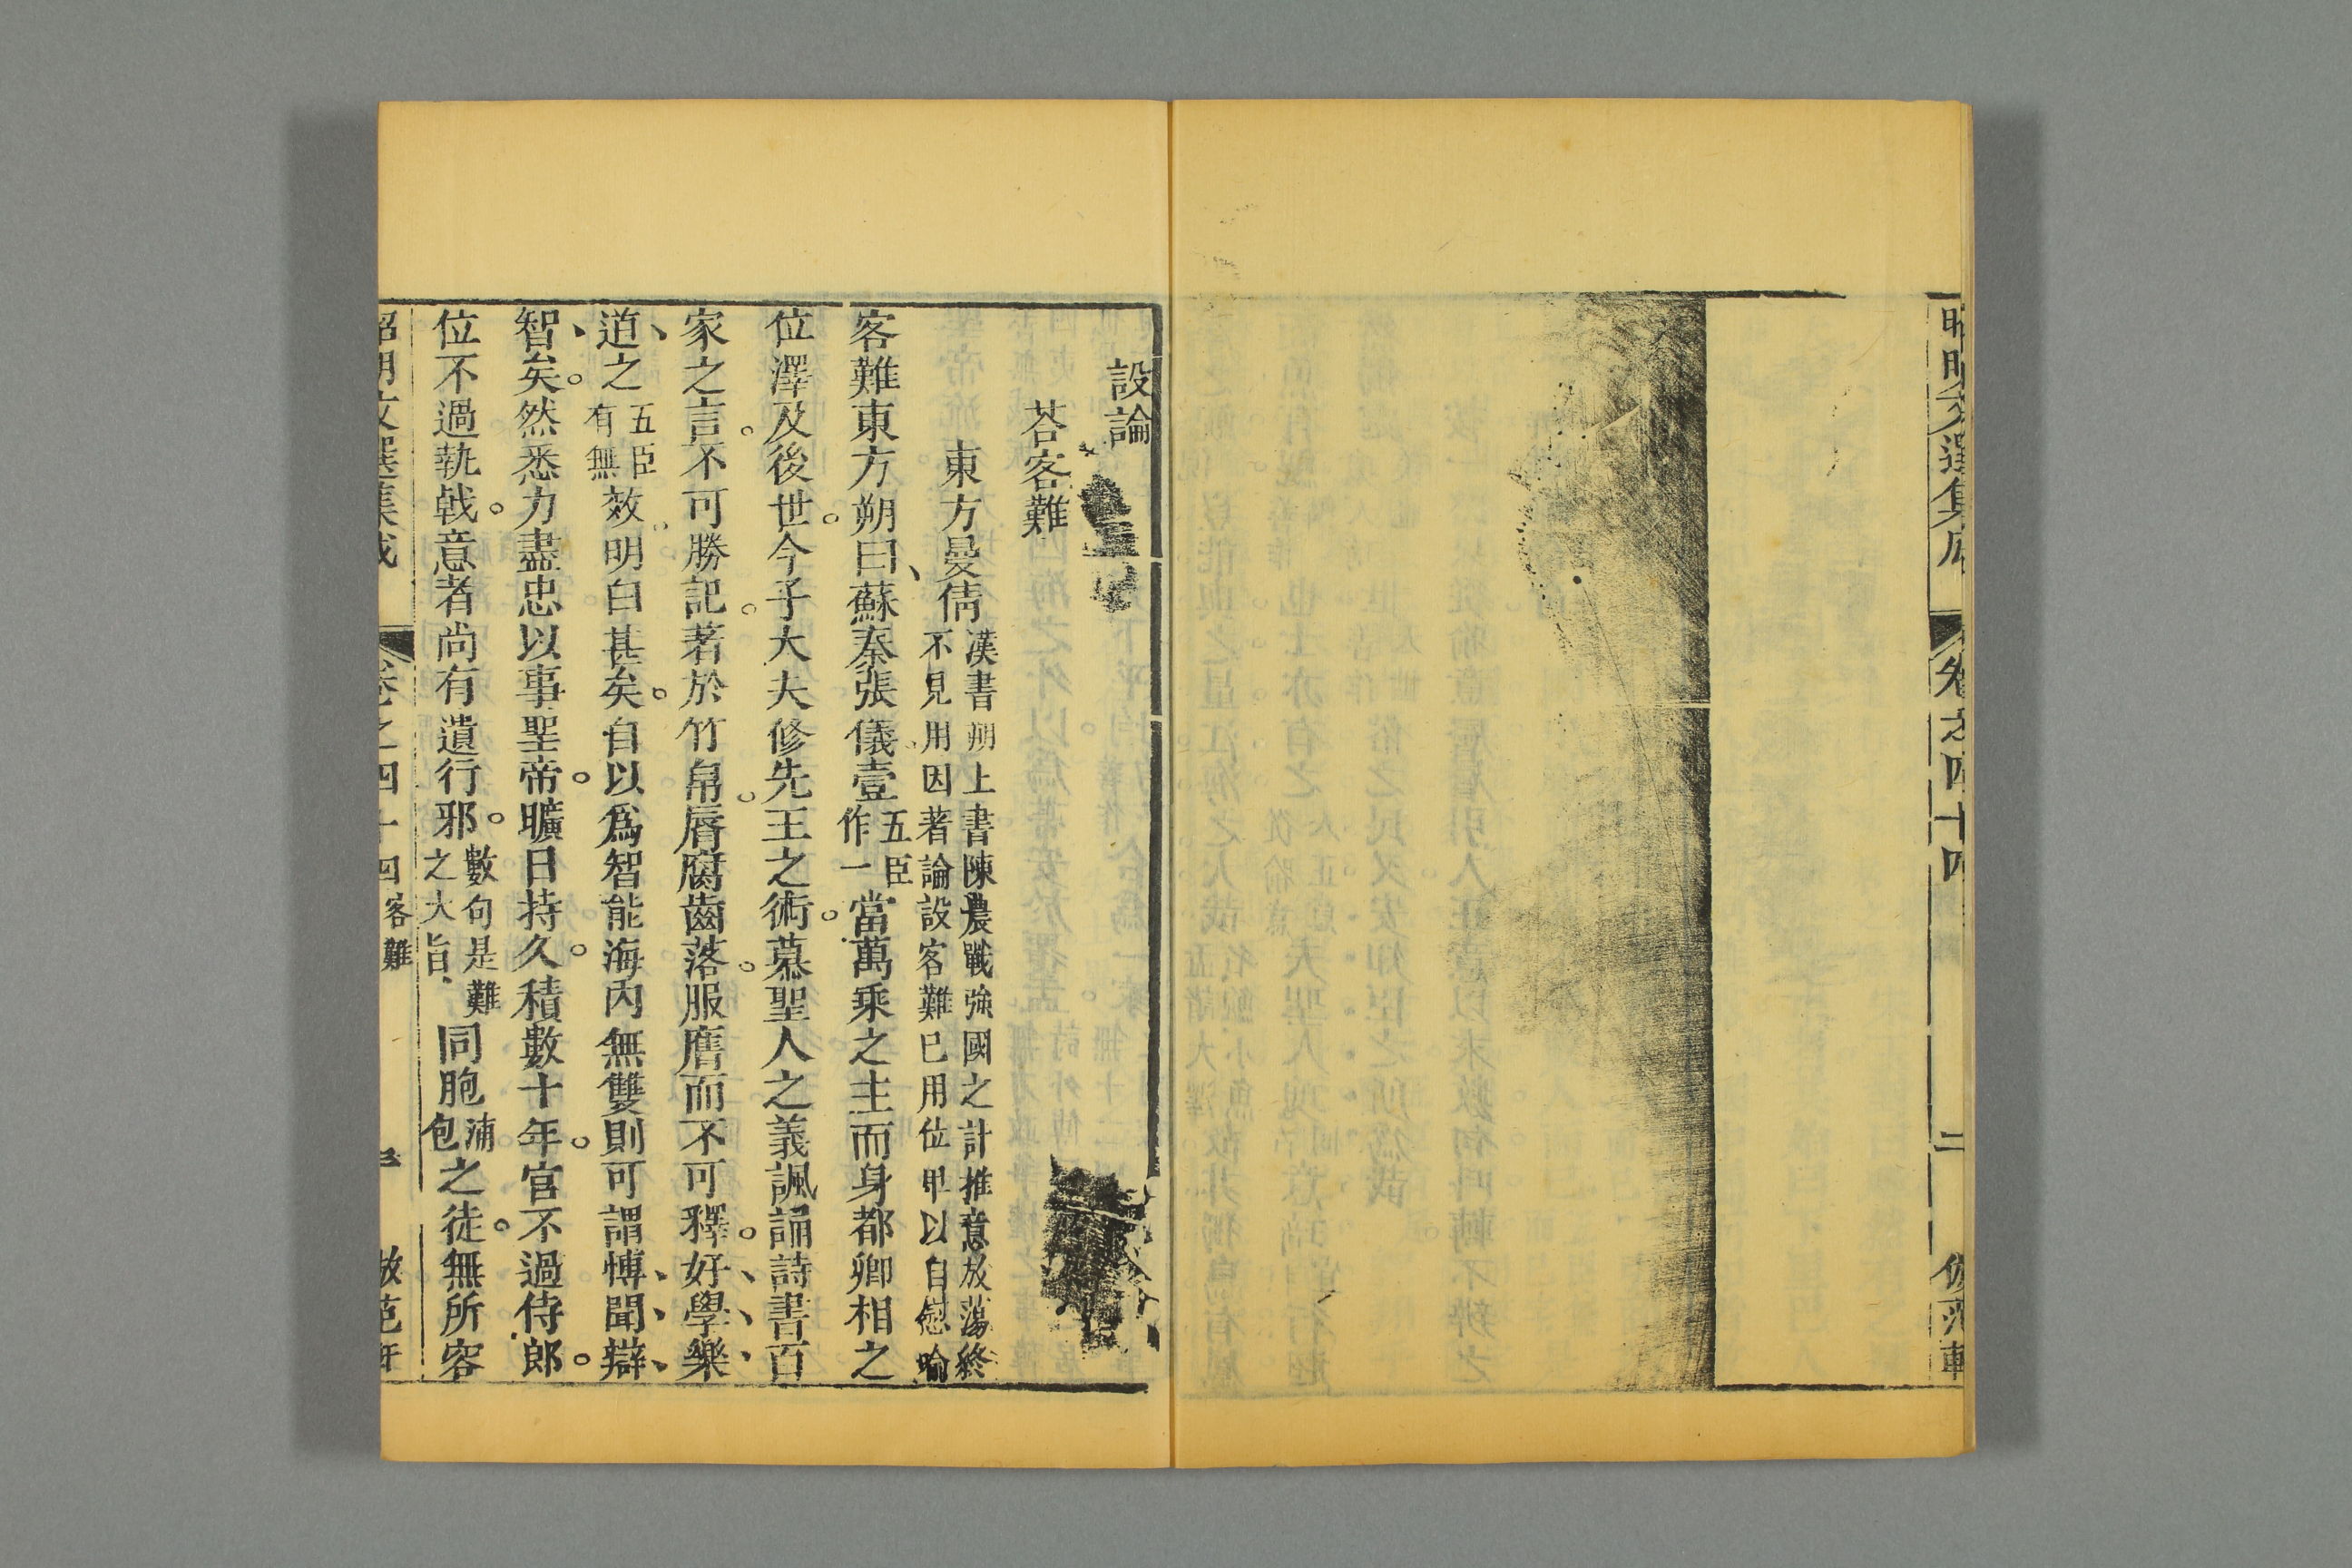 昭明文選集成 卷之四十四 二 倣范軒
設論
荅客難
東方曼倩 漢書朔上書陳農戰強國之計推意放蕩終
不見用因著論設客難已用位卑以自慰喻
客難東方朔曰蘇秦張儀壹 五臣
作一 當萬乘之主而身都卿相之
位澤及後世今子大夫修先王之術慕聖人之義諷誦詩書百
家之言不可勝記著於竹帛唇腐齒落服膺而不可釋好學樂
道之 五臣
有無 效明白甚矣自以爲智能海內無雙則可謂博聞辯
智矣然悉力盡忠以事聖帝曠日持久積數十年官不過侍郎
位不過執戟意者尚有遺行邪 數句是難
之大旨 同胞 浦
包 之徒無所容
昭明文選集成 卷之四十四 客難 倣范軒